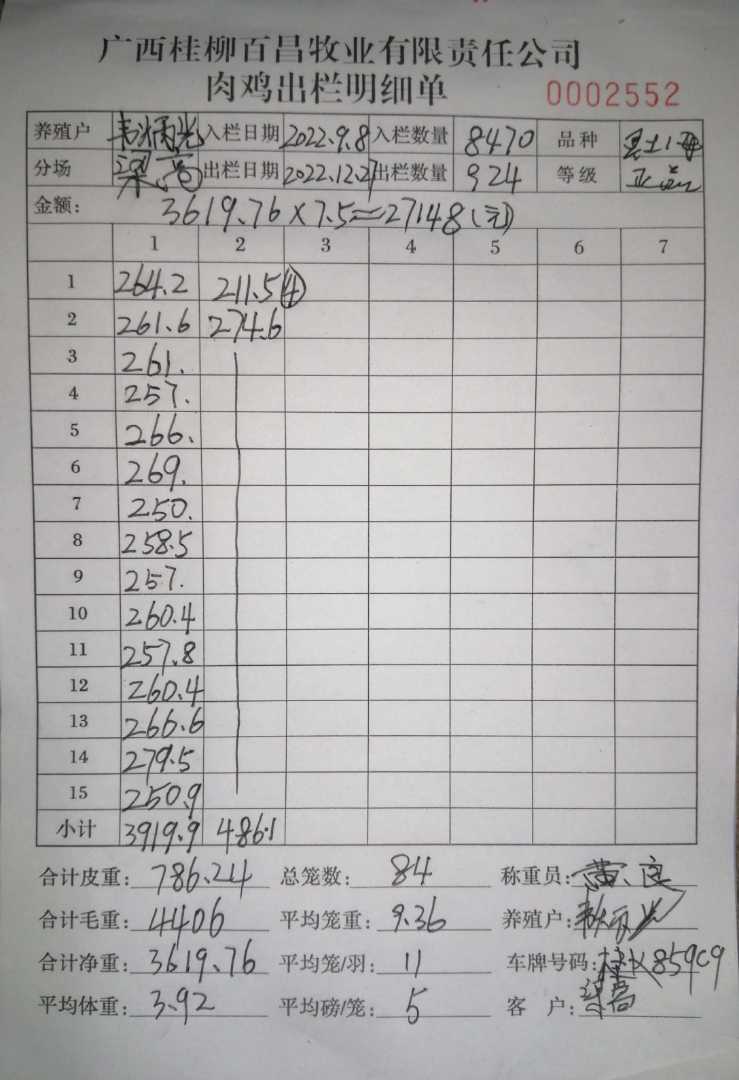 广西桂柳百昌牧业有限责任公司
肉鸡出栏明细单 0002552
养殖户 韦炳光 入栏日期 2022.9.8 入栏数量 8470 品种
分场 梁高 出栏日期 2022.12.27 出栏数量 924 等级
金额: 3619.76×7.5=27148(元)
1 2 3 4 5 6 7
1 264.2 211.5④
2 261.6 274.6
3 261.
4 257.
5 266.
6 269.
7 250.
8 258.5
9 257.
10 260.4
11 257.8
12 260.4
13 266.6
14 279.5
15 250.9
小计 3919.9 486.1
合计皮重: 786.24 总笼数: 84 称重员: 黄良
合计毛重: 4406 平均笼重: 9.36 养殖户:
合计净重: 3619.76 平均笼/羽: 11 车牌号码: 859C9
平均体重: 3.92 平均磅/笼: 5 客户: 梁高